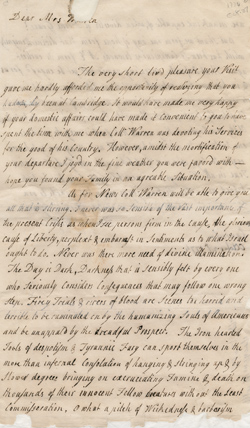 Dear Mrs
The very short lived pleasure your Visit
gave me hardly afforded me the opportunity of realizing that you
It would have made me very happy
if your domestic affairs could have made it convenient to you to have
spent the time with me when Coll Warren was devoting his Services
for the good of his Country. However, amidst the mortification of
your departure I joyd in the fine weather you were favord with
hope you found your Family in an agreable Situation.
As for News Coll Warren will be able to give you
all that is stirring. I never was so sensible of the vast importance of
the present Crisis
cause of Liberty, in Sentiments as to what
ought to do. Never was there more need of divine illumination
The Day is Dark, Darkness that is sensibly felt by every one
who Seriously Considers Consequences that may follow one wrong
Step. Firey Trials & rivers of blood are Scenes too horrid and
terrible to be ruminated on by the humanizing Souls of Americans
and be unappald by the dreadful Prospect. The Iron hearted
Tools of despotism & Tyrannic Fury can sport themselves in the
more than infernal Consolation of hanging & stringing up & by
Slow degrees bringing on excruciating Famine & death on
thousands of their innocent Fellow Creatures without the least
Commiseration. O what a pitch of Wickedness & barbarism